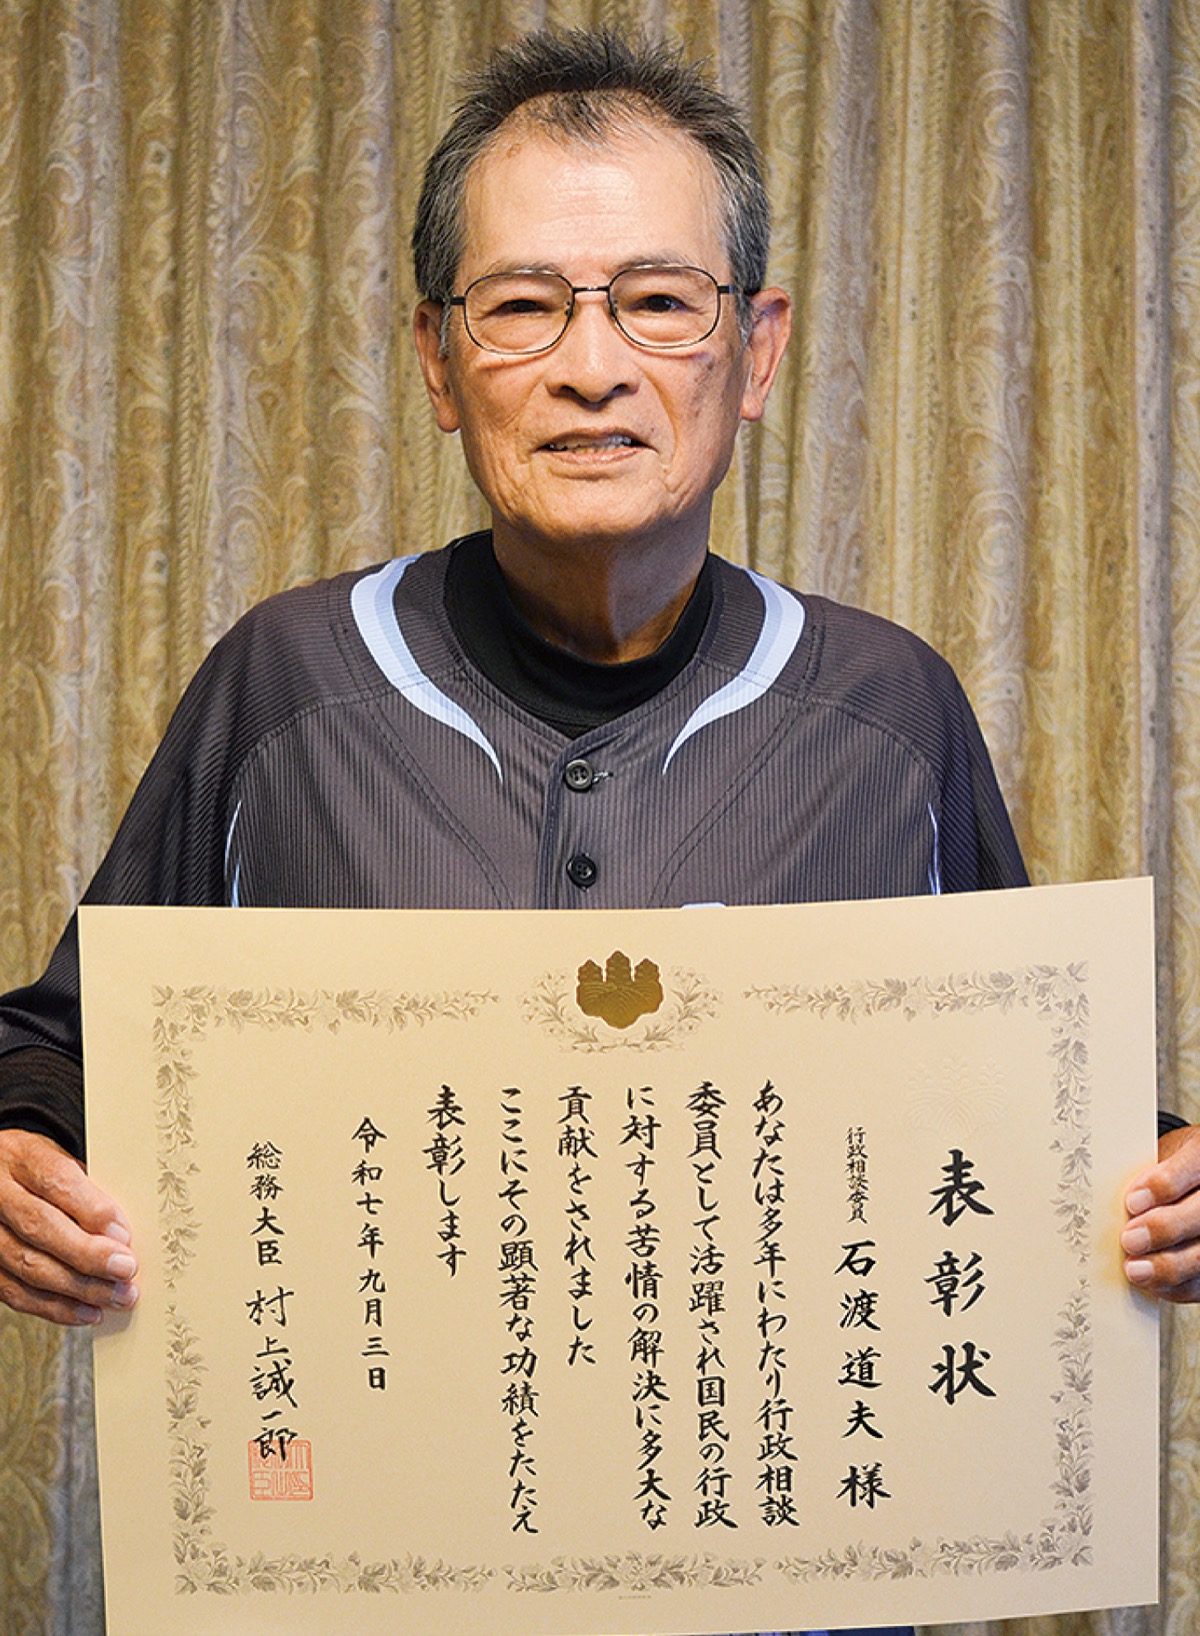 表彰状
行政相談委員 石渡道夫様
あなたは多年にわたり行政相談
委員として活躍され国民の行政
に対する苦情の解決に多大な
貢献をされました
ここにその顕著な功績をたたえ
表彰します
令和七年九月三日
総務大臣 村上誠一郎